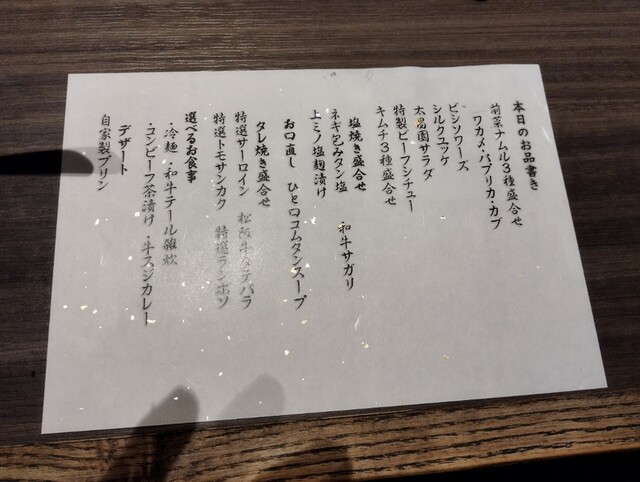 本日のお品書き
前菜ナムル3種盛合せ
ワカメ・パプリカ・カブ
ビシソワーズ
シルクユッケ
太昌園サラダ
特製ビーフシチュー
キムチ3種盛合せ
塩焼き盛合せ
ネギ包みタン塩 和牛サガリ
上ミノ塩麹漬け
お口直し ひと口コムタンスープ
タレ焼き盛合せ
特選サーロイン 松阪牛タテバラ
特選トモサンカク 特選ランボソ
選べるお食事
・冷麺 ・和牛テール雑炊
・コンビーフ茶漬け ・牛スジカレー
デザート
自家製プリン